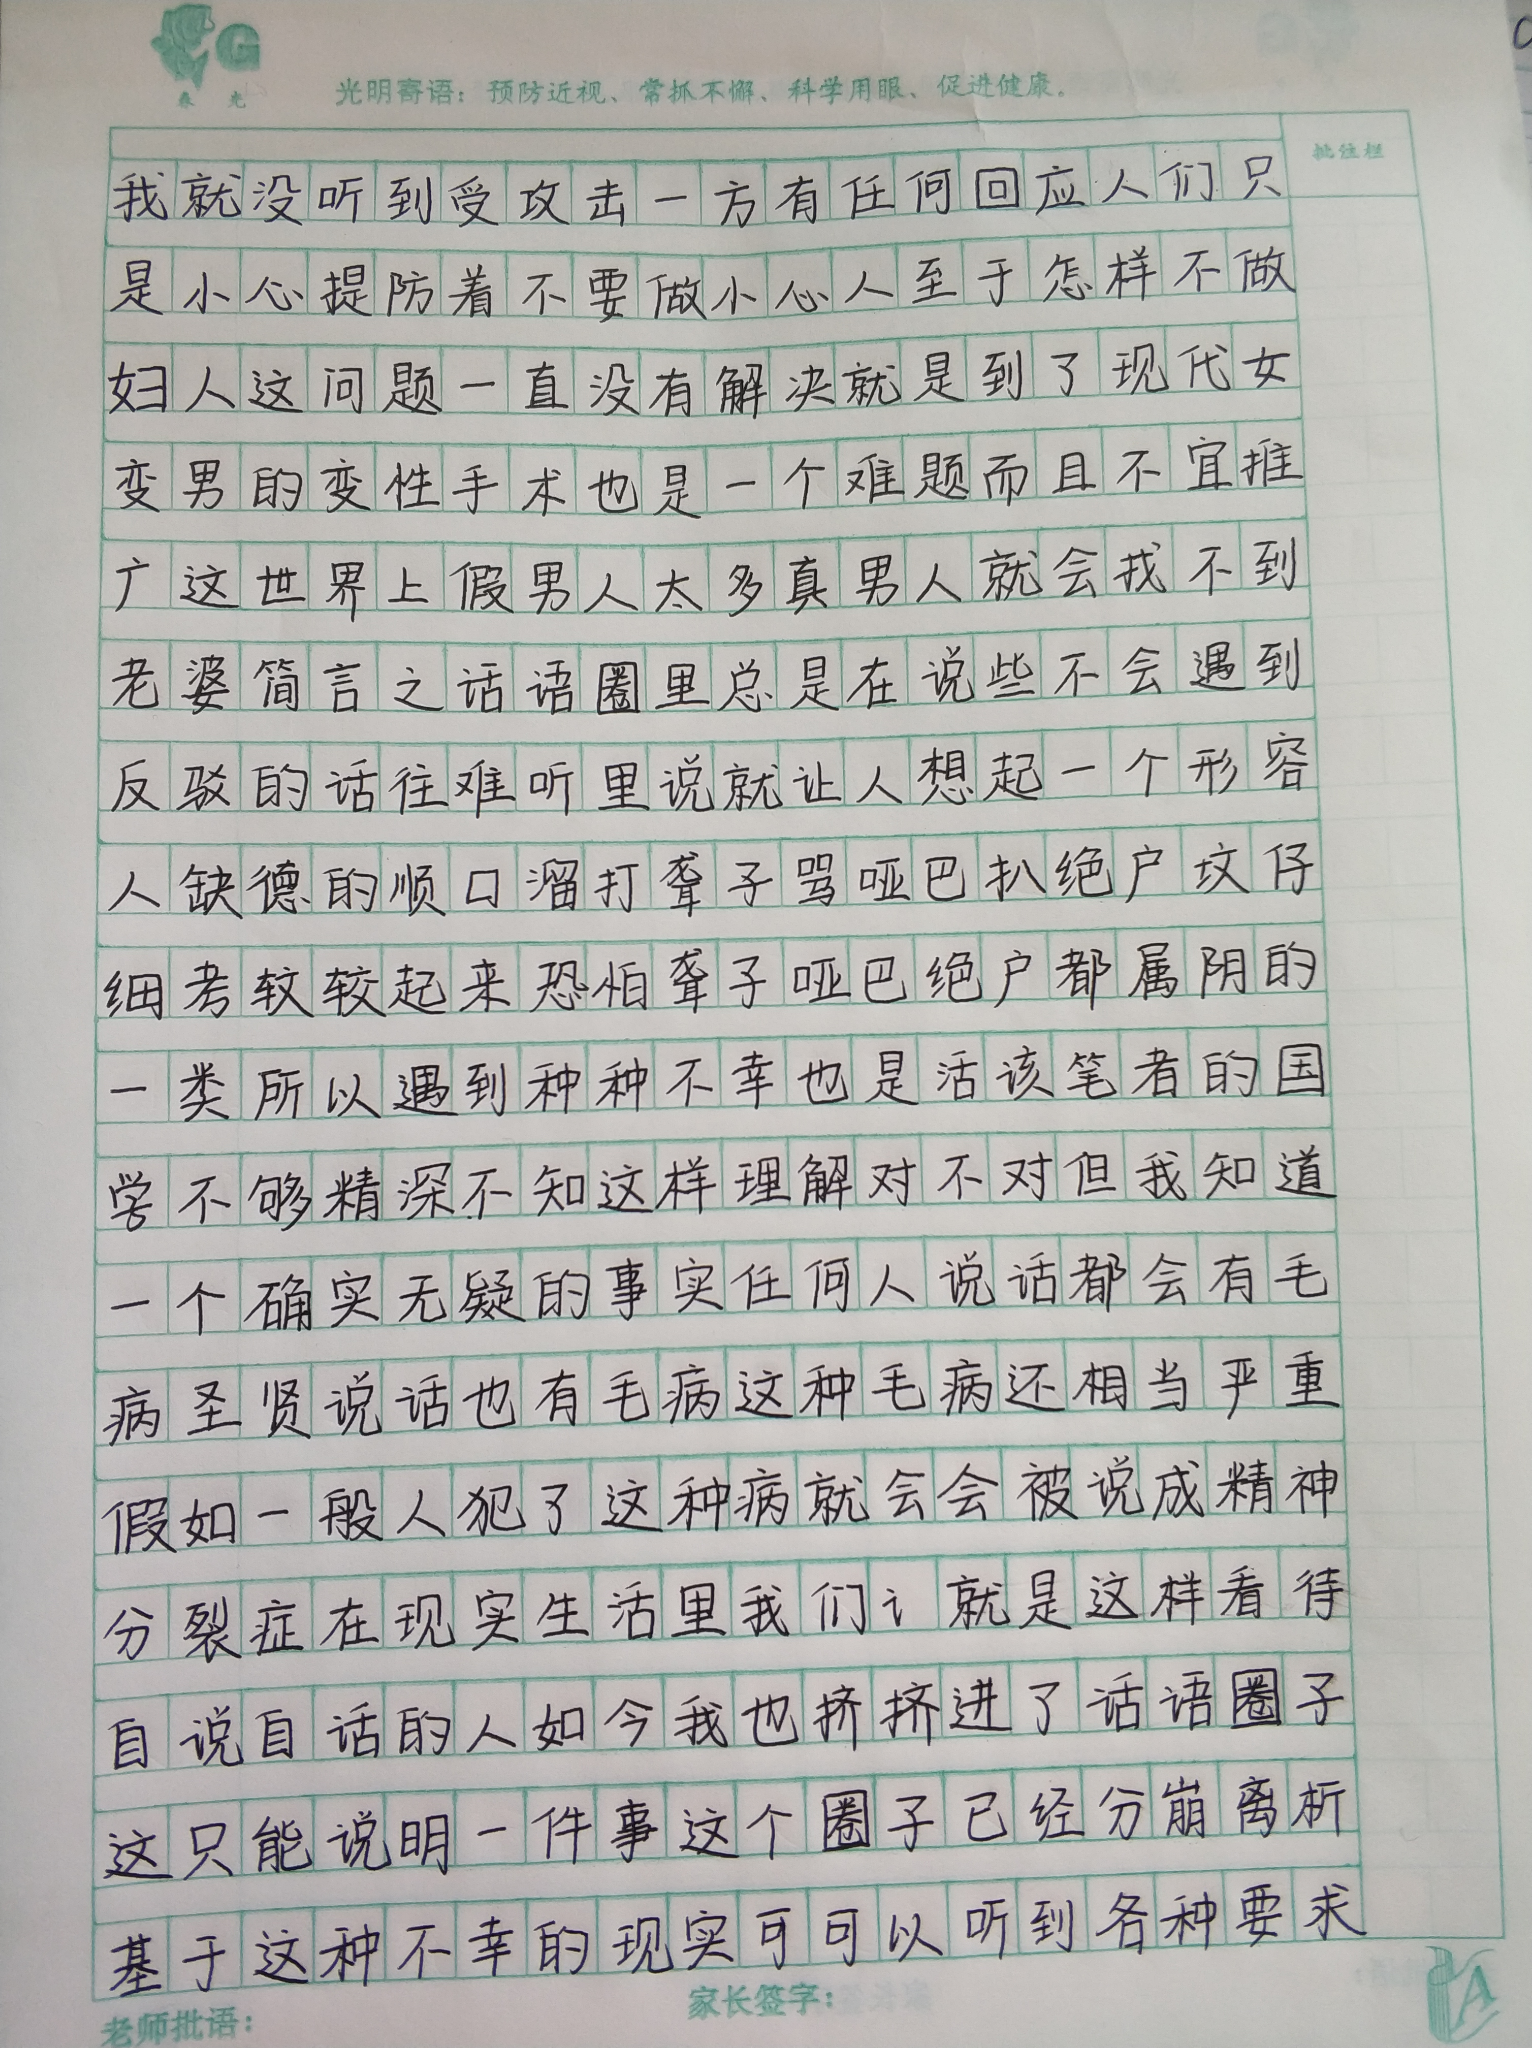 春光
光明寄语：预防近视、常抓不懈、科学用眼、促进健康。
批注栏
我就没听到受攻击一方有任何回应人们只
是小心提防着不要做小心人至于怎样不做
妇人这问题一直没有解决就是到了现代女
变男的变性手术也是一个难题而且不宜推
广这世界上假男人太多真男人就会找不到
老婆简言之话语圈里总是在说些不会遇到
反驳的话往难听里说就让人想起一个形容
人缺德的顺口溜打聋子骂哑巴扒绝户坟仔
细考较较起来恐怕聋子哑巴绝户都属阴的
一类所以遇到种种不幸也是活该笔者的国
学不够精深不知这样理解对不对但我知道
一个确实无疑的事实任何人说话都会有毛
病圣贤说话也有毛病这种毛病还相当严重
假如一般人犯了这种病就会会被说成精神
分裂症在现实生活里我们讠就是这样看待
自说自话的人如今我也挤挤进了话语圈子
这只能说明一件事这个圈子已经分崩离析
基于这种不幸的现实可可以听到各种要求
老师批语：
家长签字：